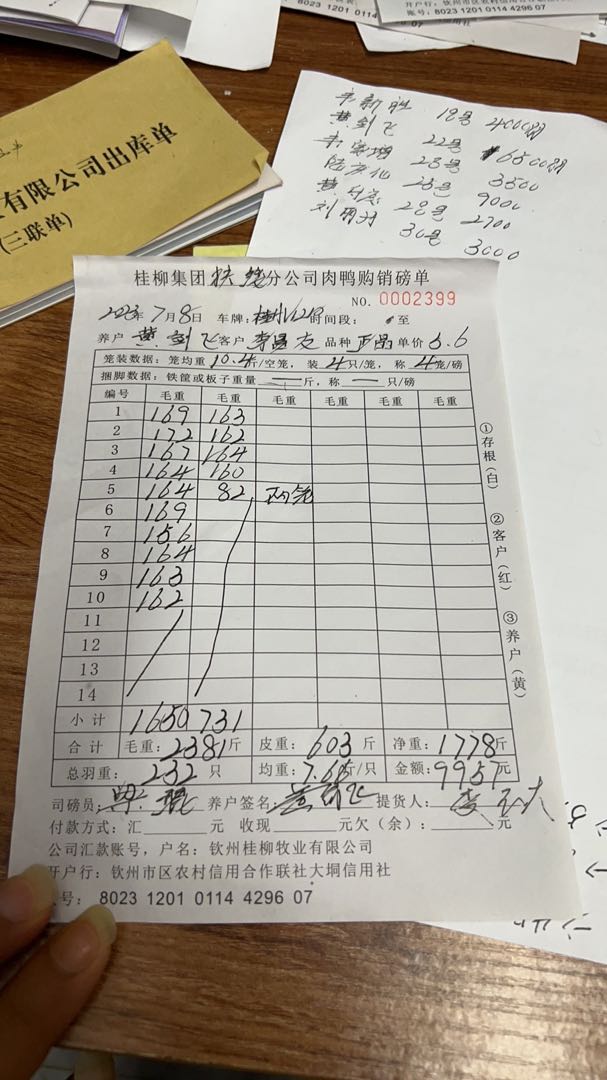 开户行：钦州市区农村信用合作联社
账号：8023 1201 0114 4296 07
有限公司出库单
(三联单)
18号 4000
黄剑飞 22号 6500
28号 3500
25号 9000
28号 2700
30号 3000
桂柳集团 分公司肉鸭购销磅单
NO. 0002399
2023年7月8日 车牌： 时间段： 至
养户 黄剑飞 客户 李昌友 品种 正品 单价 5.6
笼装数据：笼均重 10.4斤/空笼，装 4 只/笼，称 4 笼/磅
捆脚数据：铁筐或板子重量 — 斤，称 — 只/磅
编号 毛重 毛重 毛重 毛重 毛重 毛重
1 169 163
2 172 162
3 167 164
4 164 160
5 164 82 两笼
6 169
7 156
8 164
9 163
10 162
11
12
13
14
小计 1650 731
合计 毛重：2381斤 皮重：603斤 净重：1778斤
总羽重：232只 均重：7.665斤/只 金额：9957元
司磅员： 养户签名：黄剑飞 提货人：
付款方式：汇 元 收现 元欠（余）： 元
公司汇款账号，户名：钦州桂柳牧业有限公司
开户行：钦州市区农村信用合作联社大垌信用社
号：8023 1201 0114 4296 07
①存根（白）
②客户（红）
③养户（黄）